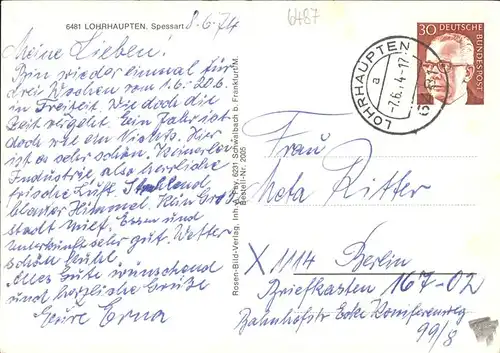 6481 LOHRHAUPTEN. Spessart
8.6.74
Meine Lieben!
Bin wieder einmal für
drei Wochen vom 1.6.-20.6.
in Freiheit. Wie doch die
Zeit vergeht. Ein Jahr ist
doch wie ein Nichts. Hier
ist es sehr schön. Keinerlei
Industrie also herrliche
frische Luft Strahlend
blauer Himmel. Kein Groß-
stadt mief. Essen und
Unterkunft sehr gut. Wetter
schön kühl.
Alles Gute wünschend
und herzliche Grüße
Eure Erna
Rosen-Bild-Verlag, Inh. A. Fey, 6231 Schwalbach b. Frankfurt/M.
Bestell-Nr. 2005
6487
30 DEUTSCHE BUNDESPOST
LOHRHAUPTEN
a
-7.6.74-17
Frau
Meta Ritter
X 1114 Berlin
Briefkasten 167-02
Bahnhofstr Ecke Koniferenweg
99/8